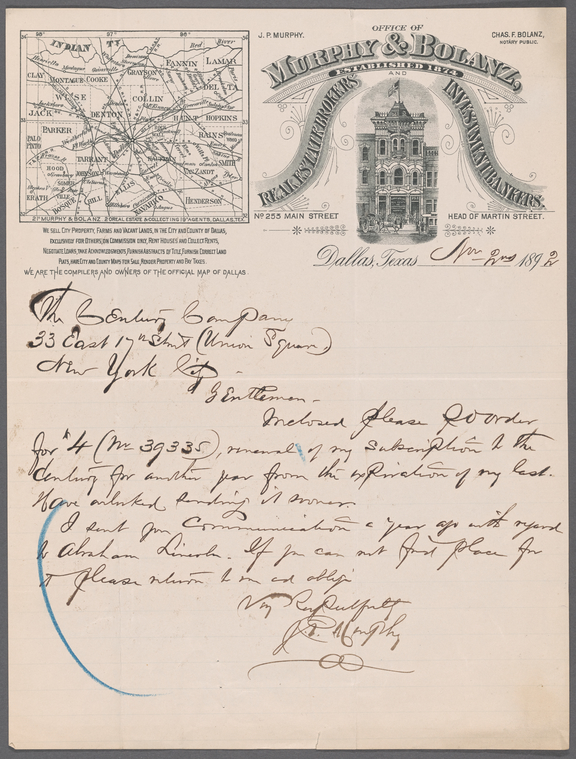 J. P. MURPHY.
OFFICE OF
CHAS. F. BOLANZ,
NOTARY PUBLIC.
MURPHY & BOLANZ,
ESTABLISHED 1874
AND
REAL ESTATE BROKERS
INVESTMENT BANKERS.
Nº 255 MAIN STREET
HEAD OF MARTIN STREET.
INDIAN TY
Red River
CLAY
MONTAGUE
COOKE
GRAYSON
FANNIN
LAMAR
DELTA
WISE
COLLIN
JACK
DENTON
HUNT
HOPKINS
PARKER
RAINS
PALO PINTO
TARRANT
KAUFMAN
VAN ZANDT
SMITH
HOOD
JOHNSON
ELLIS
ERATH
BOSQUE
HILL
NAVARRO
HENDERSON
MURPHY & BOLANZ, REAL ESTATE & COLLECTING AGENTS, DALLAS, TEX.
WE SELL CITY PROPERTY, FARMS AND VACANT LANDS, IN THE CITY AND COUNTY OF DALLAS,
EXCLUSIVELY FOR OTHERS, (ON COMMISSION ONLY, RENT HOUSES AND COLLECT RENTS,
NEGOTIATE LOANS, TAKE ACKNOWLEDGMENTS, FURNISH ABSTRACTS OF TITLE, FURNISH CORRECT LAND
PLATS, HAVE CITY AND COUNTY MAPS FOR SALE, RENDER PROPERTY AND PAY TAXES.
WE ARE THE COMPILERS AND OWNERS OF THE OFFICIAL MAP OF DALLAS.
Dallas, Texas Nov 2nd 1892
The Century Company
33 East 17th Street (Union Square)
New York City -
Gentlemen -
Inclosed please PO order
for $4 (No 39335), renewal of my subscription to the
Century for another year from the expiration of my last.
Have overlooked sending it sooner.
I sent you Communication a year ago with regard
to Abraham Lincoln. If you can not find place for
it please return to me and oblige
Very Respectfully
J. P. Murphy